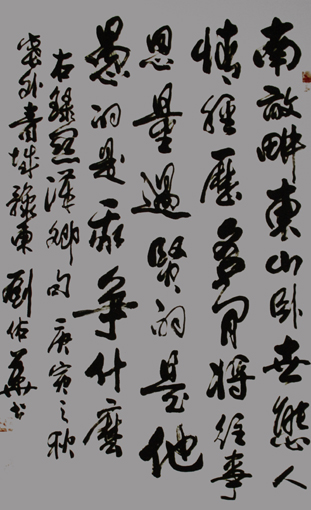 南畝畊東山卧世態人
情經歷多閒將往事
思量過賢的是他
愚的是我爭什麼
右錄關漢卿句 庚寅之秋
塞外青城豫東 劉華书